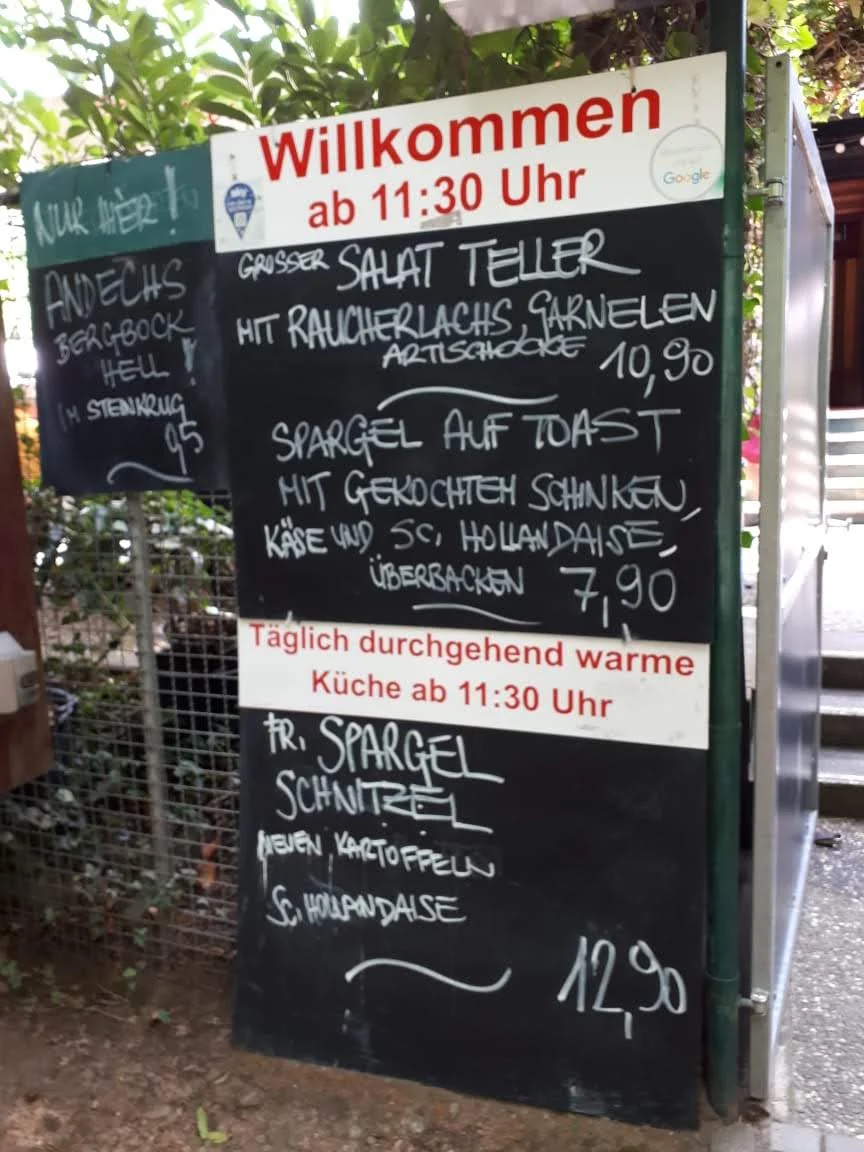 NUR HIER!
ANDECHS
BERGBOCK
HELL!
IM STEINKRUG
Willkommen
ab 11:30 Uhr
sky
Google
GROSSER SALAT TELLER
MIT RAUCHERLACHS, GARNELEN
ARTISCHOCKE 10,90
SPARGEL AUF TOAST
MIT GEKOCHTEM SCHINKEN,
KÄSE UND SC, HOLLANDAISE,
ÜBERBACKEN 7,90
Täglich durchgehend warme
Küche ab 11:30 Uhr
FR. SPARGEL
SCHNITZEL
NEUEN KARTOFFELN
SC. HOLLANDAISE
12,90